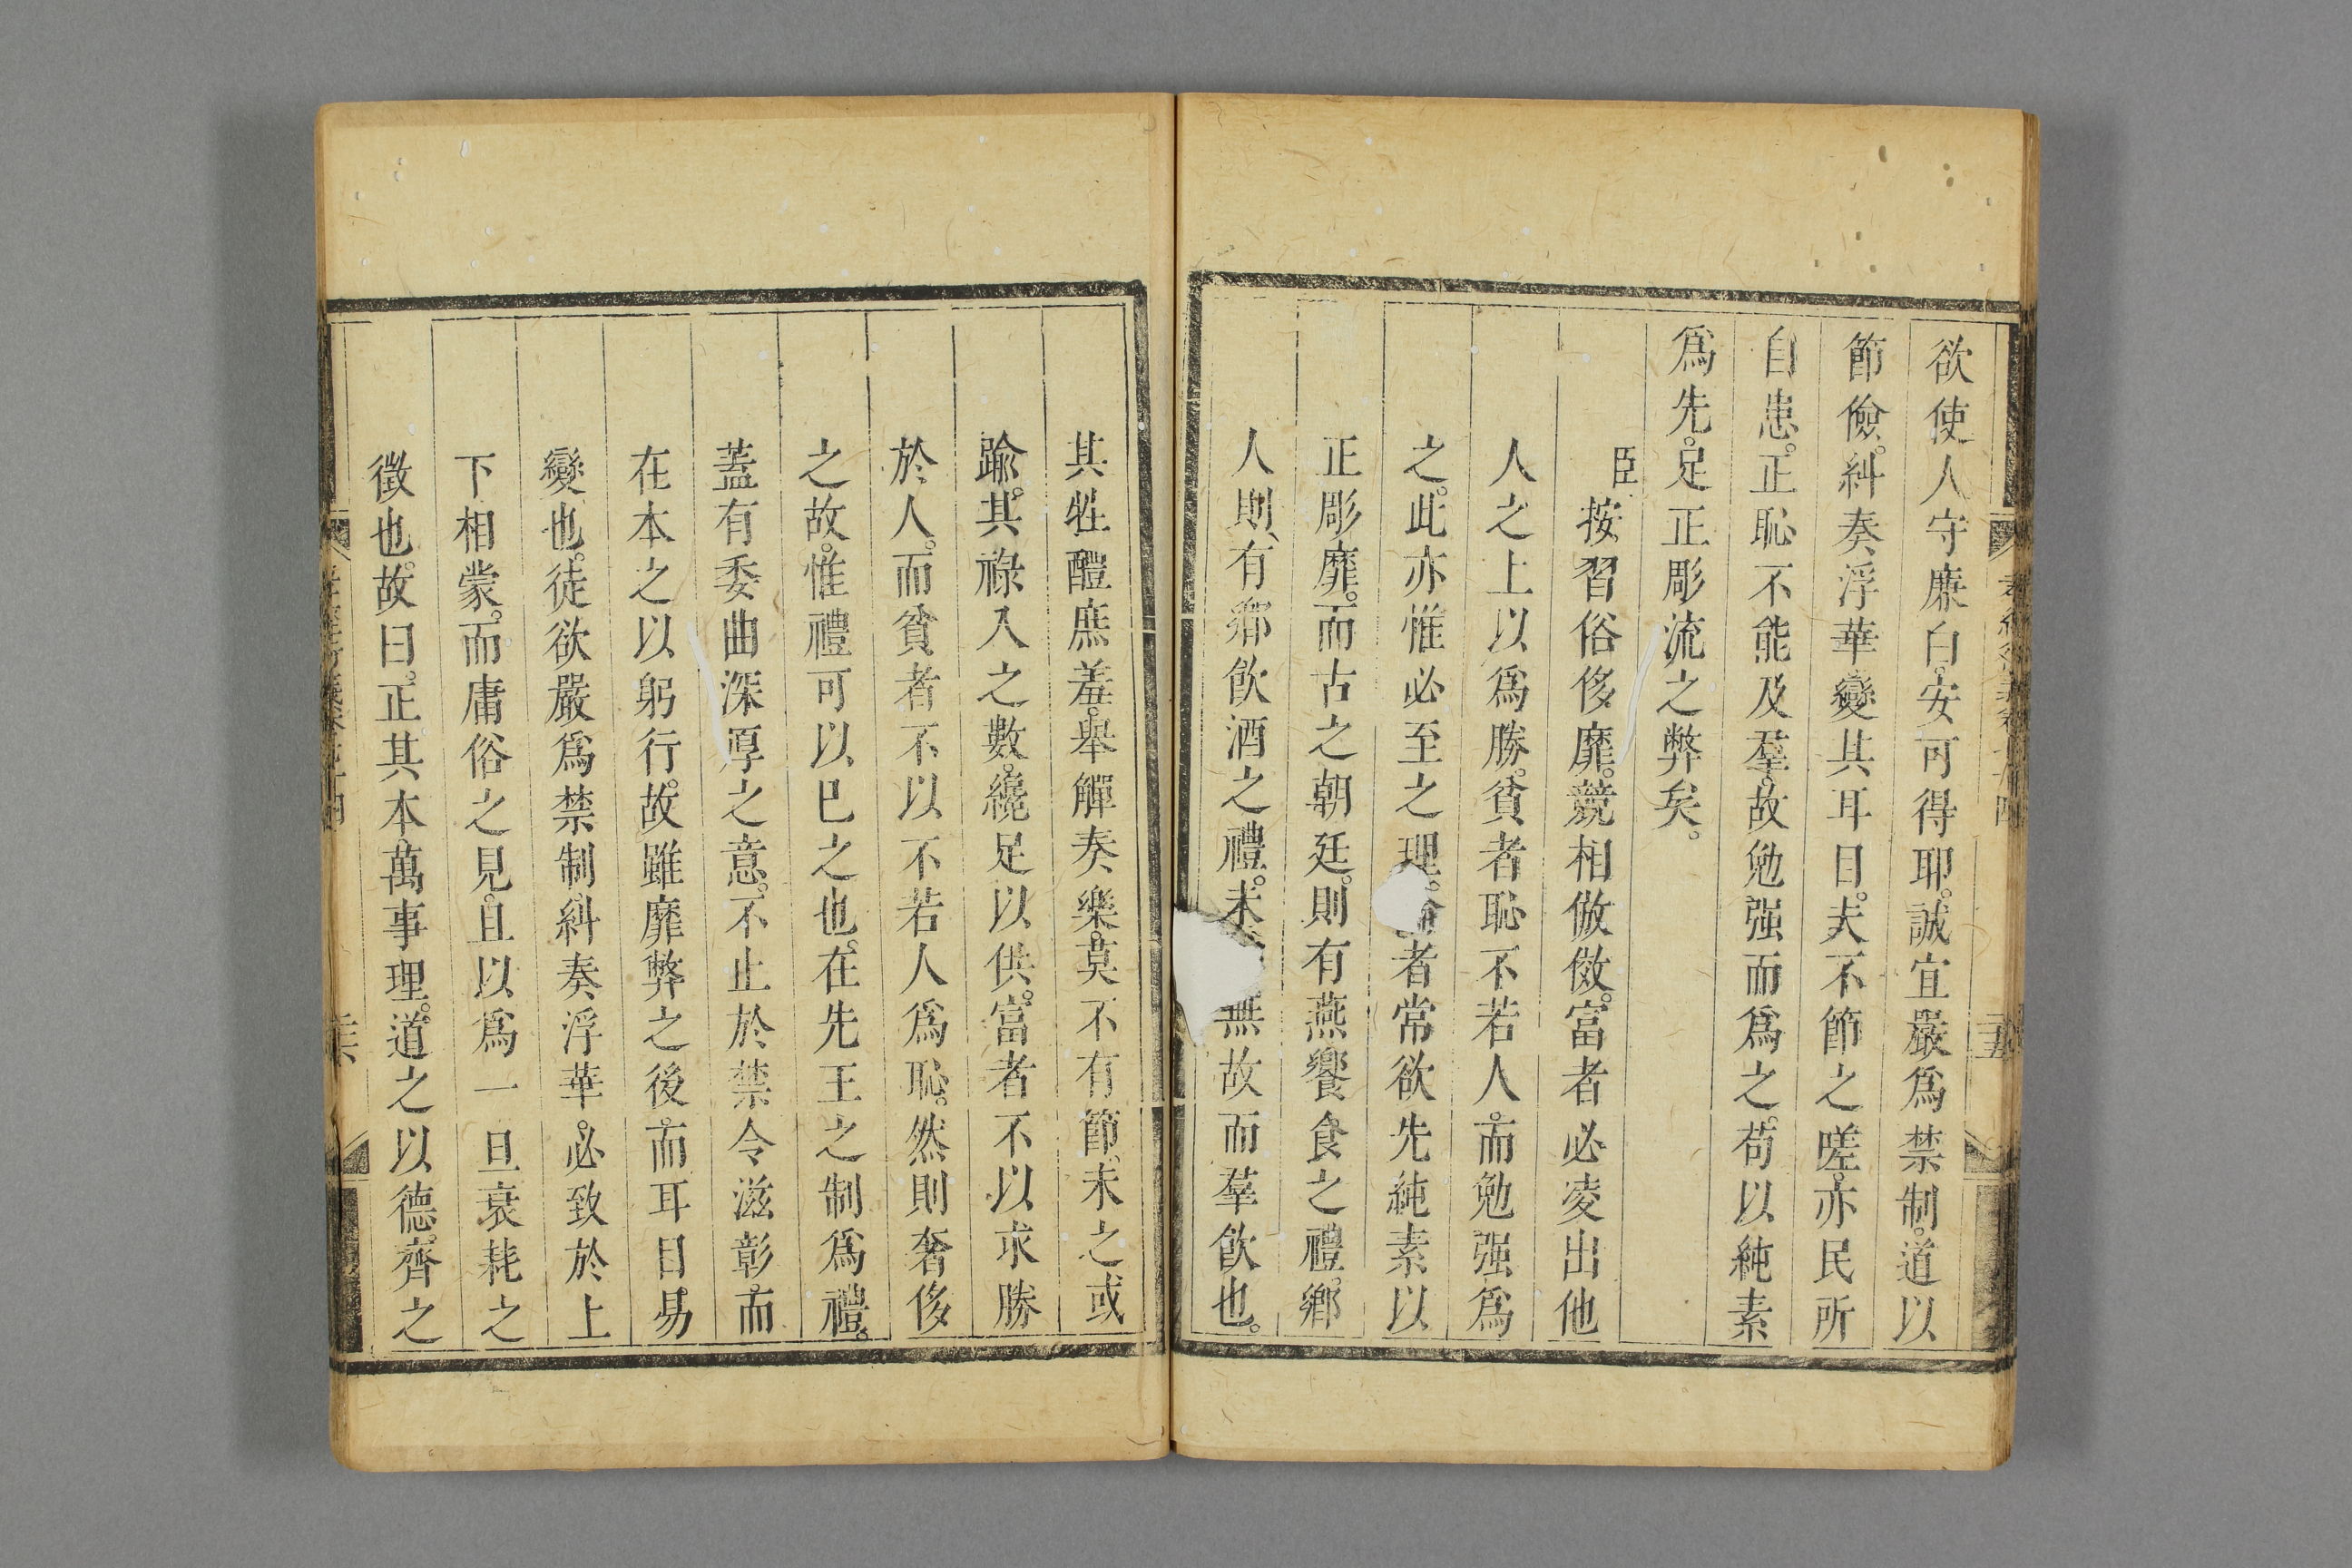 欲使人守廉白。安可得耶。誠宜嚴爲禁制。道以
節儉。糾奏浮華變其耳目。夫不節之嗟。亦民所
自患。正恥不能及羣。故勉强而爲之。苟以純素
爲先。足正彫流之弊矣。
臣按習俗侈靡。競相倣傚。富者必凌出他
人之上以爲勝。貧者恥不若人。而勉强爲
之。此亦惟必至之理。者常欲先純素以
正彫靡。而古之朝廷。則有燕饗食之禮。鄉
人則有鄉飲酒之禮。未無故而羣飲也。
其牲醴庶羞。舉觶奏樂。莫不有節。未之或
踰。其祿入之數。纔足以供。富者不以求勝
於人。而貧者不以不若人爲恥。然則奢侈
之故。惟禮可以已之也。在先王之制爲禮。
蓋有委曲深厚之意。不止於禁令滋彰。而
在本之以躬行。故雖靡弊之後。而耳目易
變也。徒欲嚴爲禁制糾奏浮華。必致於上
下相蒙。而庸俗之見。且以爲一旦衰耗之
徵也。故曰。正其本。萬事理。道之以德。齊之